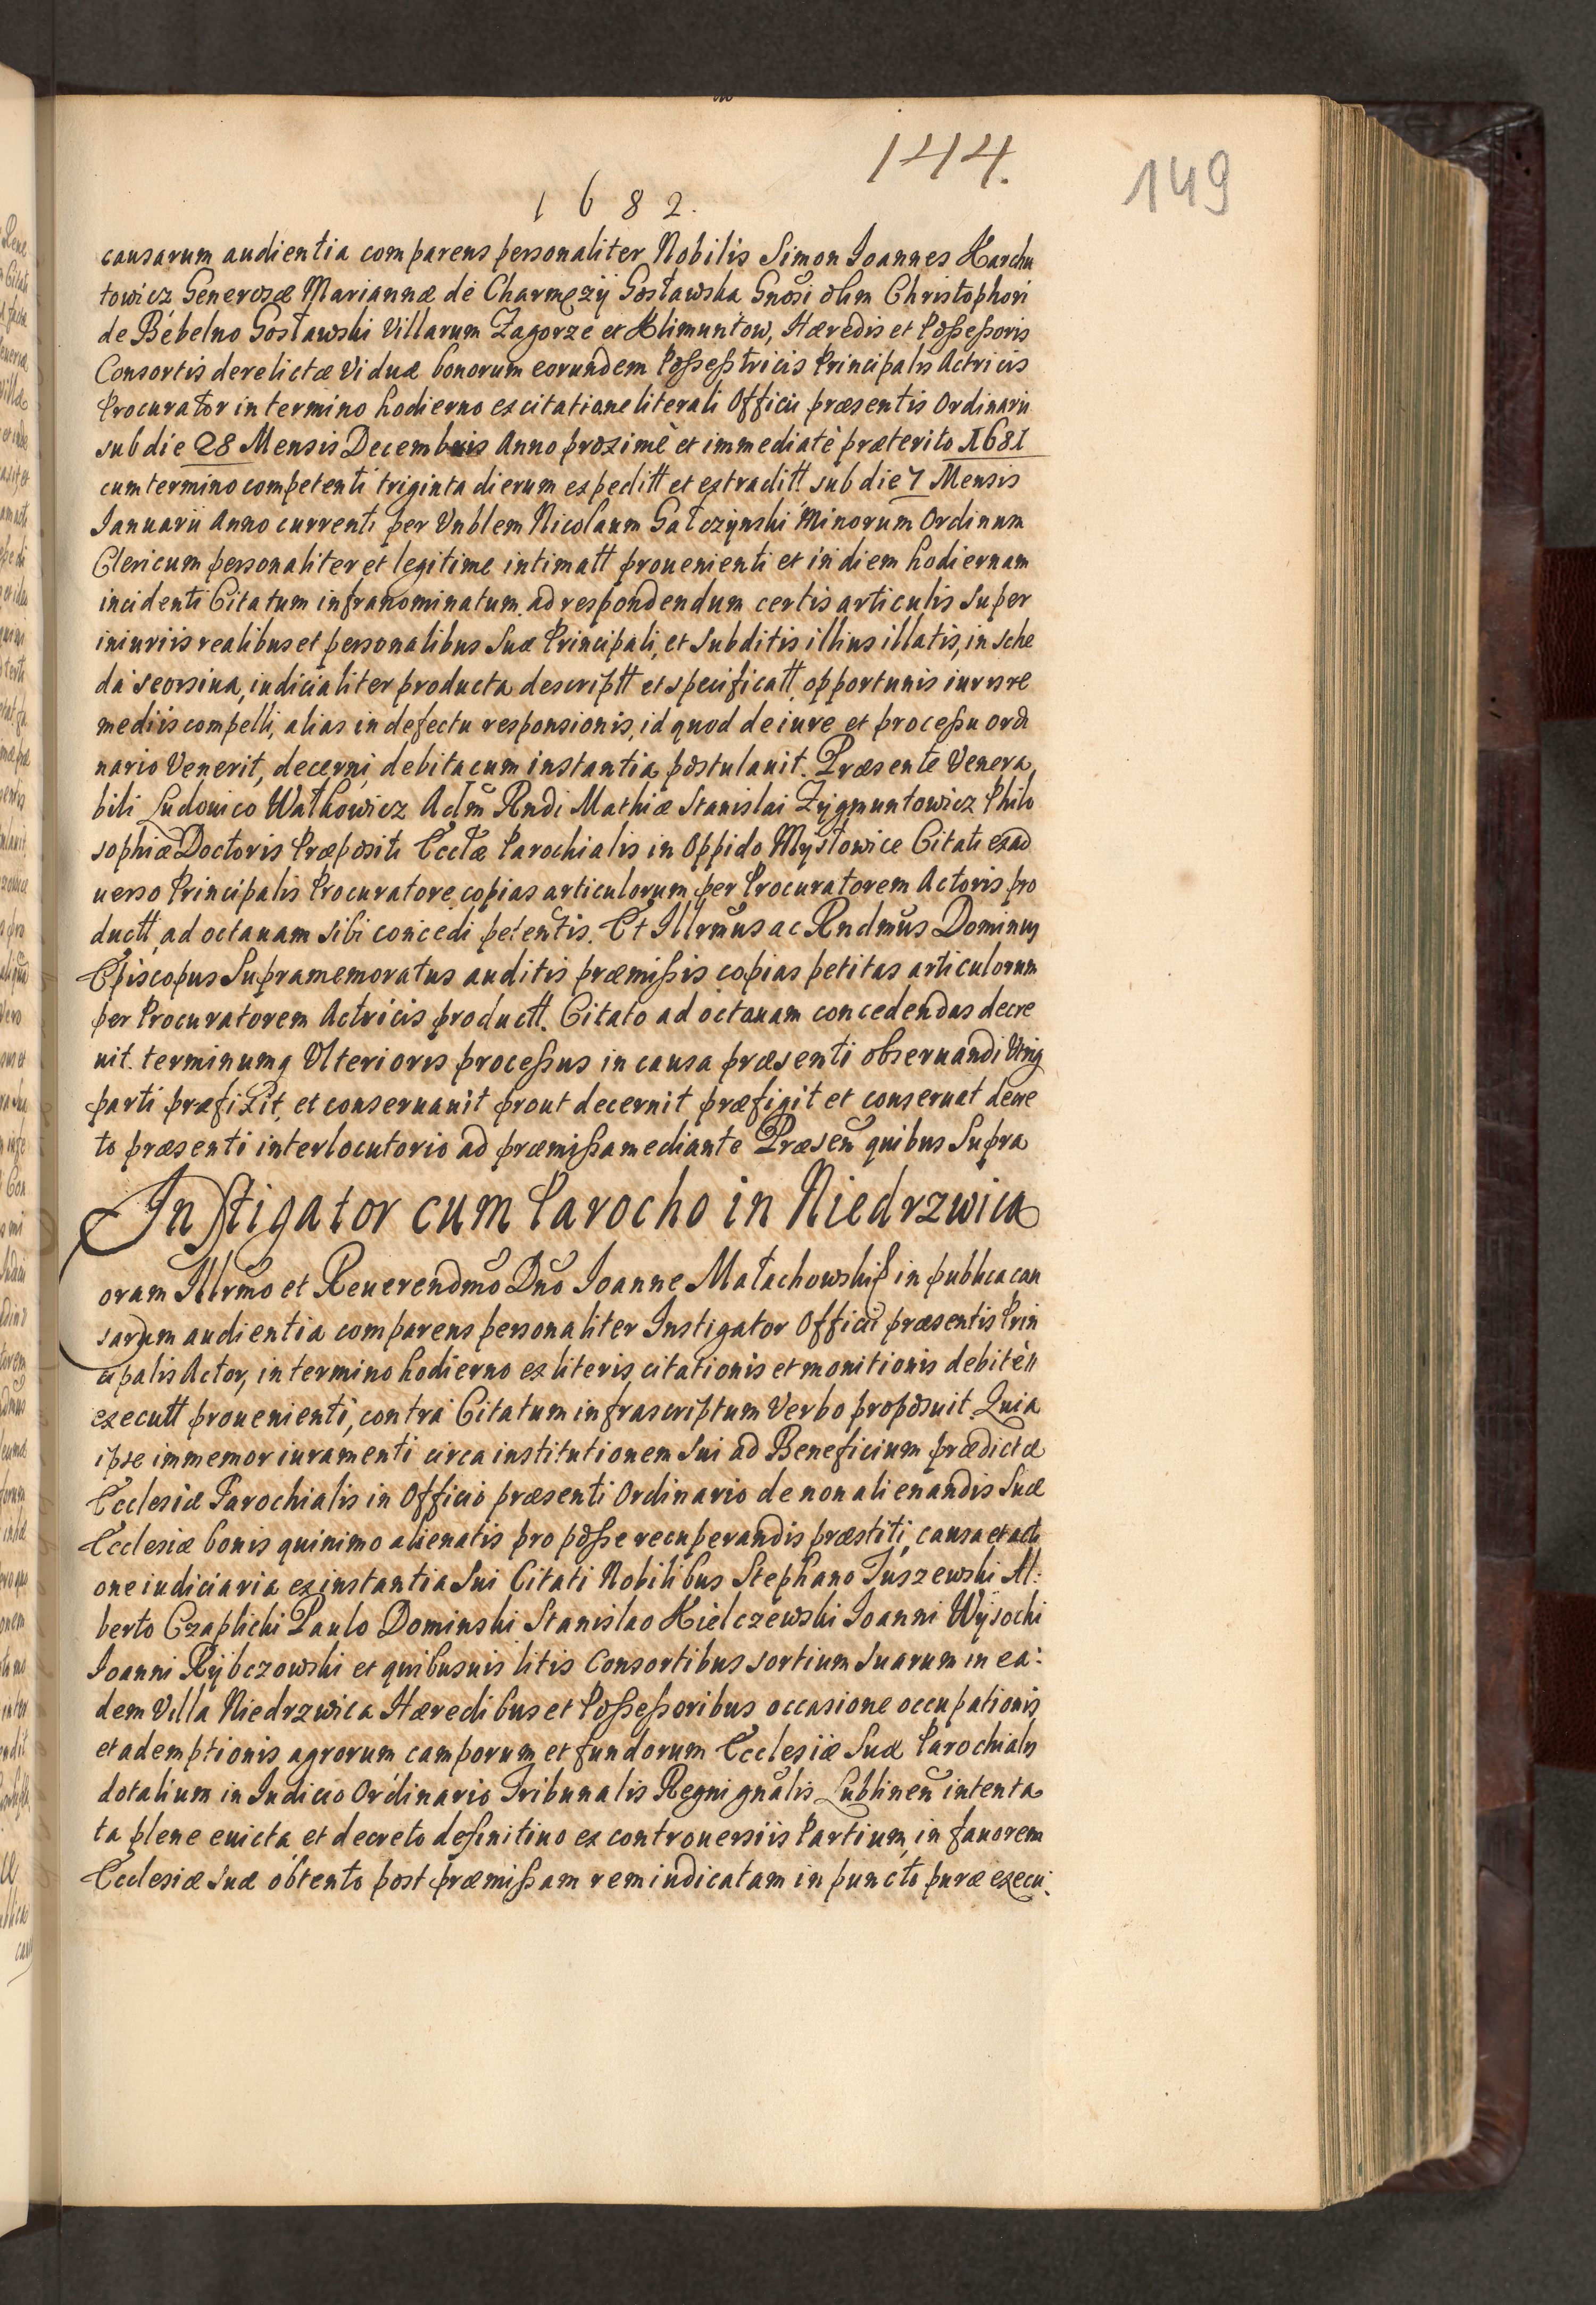 144.
149
1682.
causarum audientia comparens personaliter Nobilis Simon Ioannes Karchu
towicz Generosæ Mariannæ de Charmęzÿ Gosławska Gnosi olim Christophori
de Bebelno Gosławski Villarum Zagorze et Klimuntow, Hæredis et Poßeßoris
Consortis derelictæ Viduæ bonorum eorundem Poßeßtricis Principalis Actricis
Procurator in termino hodierno ex citatione literali Officii præsentis Ordinarii
sub die 28 Mensis Decembris Anno proximè et immediatè præterito 1681
cum termino competenti triginta dierum expeditt et extraditt sub die 7 Mensis
Ianuarii Anno currenti per Vnblem Nicolaum Gałczÿnski Minorum Ordinum
Clericum personaliter et legitime intimatt prouenienti et in diem hodiernam
incidenti Citatum infranominatum ad respondendum certis articulis super
iniuriis realibus et personalibus Suæ Principali, et Subditis illius illatis, in sche
da seorsiua, iudicialiter producta descriptt et specificatt opportunis iuris re
mediis compelli, alias in defectu responsionis, id quod de iure et proceßu ordi
nario Venerit, decerni debita cum instantia postulauit. Præsente Venera
bili Ludouico Wałkowicz Adm̃ Rndi Mathiæ Stanislai Zÿgmuntowicz Philo
sophiæ Doctoris Præpositi Ecctæ Parochialis in Oppido Mÿsłowice Citati ex ad
uerso Principalis Procuratore copias articulorum per Procuratorem Actoris pro
ductt ad octauam sibi concedi petentis. Et Illrmus ac Rndmus Dominus
Episcopus Supramemoratus auditis præmißis copias petitas articulorum
per Procuratorem Actricis productt. Citato ad octauam concedendas decre
uit. terminumq Vlterioris proceßus in causa præsenti obseruandi Vtriq
parti præfixit et conseruauit prout decernit præfigit et conseruat decre
to præsenti interlocutorio ad præmißa mediante Præsen quibus Supra
Instigator cum Parocho in Niedrzwica
oram Illrmo et Reuerendmo Dno Ioanne Małachowski Ep in publica cau
sarum audientia comparens personaliter Instigator Officii præsentis Prin
cipalis Actor, in termino hodierno ex literis citationis et monitionis debitè
executt prouenienti, contra Citatum infrascriptum Verbo proposuit. Quia
ipse immemor iuramenti circa institutionem sui ad Beneficium prædictæ
Ecclesiæ Parochialis in Officio præsenti Ordinario de non alienandis Suæ
Ecclesiæ bonis quinimo alienatis pro poße recuperandis præstiti, causa et acti
one iudiciaria ex instantia Sui Citati Nobilibus Stephano Tuszewski Al:
berto Czaplicki Paulo Dominski Stanislao Kiełczewski Ioanni Wÿsocki
Ioanni Rÿbczowski et quibusuis litis Consortibus sortium suarum in ea:
dem Villa Niedrzwica Hæredibus et Poßeßoribus occasione occupationis
et ademptionis agrorum camporum et fundorum Ecclesiæ Suæ Parochialis
dotalium in Iudicio Ordinario Tribunalis Regni gnalis Lublinen intenta
ta plene euicta et decreto definitiuo ex controuersiis Partium in fauorem
Ecclesiæ suæ obtento post præmißam rem iudicatam in puncto puræ execu: